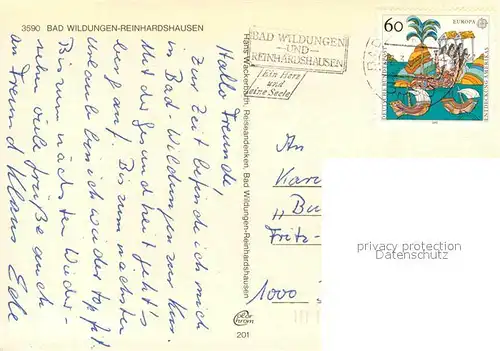 3590 BAD WILDUNGEN-REINHARDSHAUSEN
Hallo Freunde,
zur Zeit befinde ich mich
in Bad-Wildungen zur Kur.
Mit der Gesundheit geht's
bergauf. Bis zum nächsten
Urlaub bin ich wieder top fit.
Bis zum nächsten Wieder-
sehen viele Grüße auch
an Freund Klaus Ede
Hans Wackerbarth, Reiseandenken, Bad Wildungen-Reinhardshausen
BAD WILDUNGEN
-UND-
REINHARDSHAUSEN
Ein Herz
und
eine Seele
60
EUROPA
DEUTSCHE BUNDESPOST
ENTDECKUNG AMERIKAS
An
Kar
Bu
Fritz-
1000
color
chrom
201
privacy protection
Datenschutz